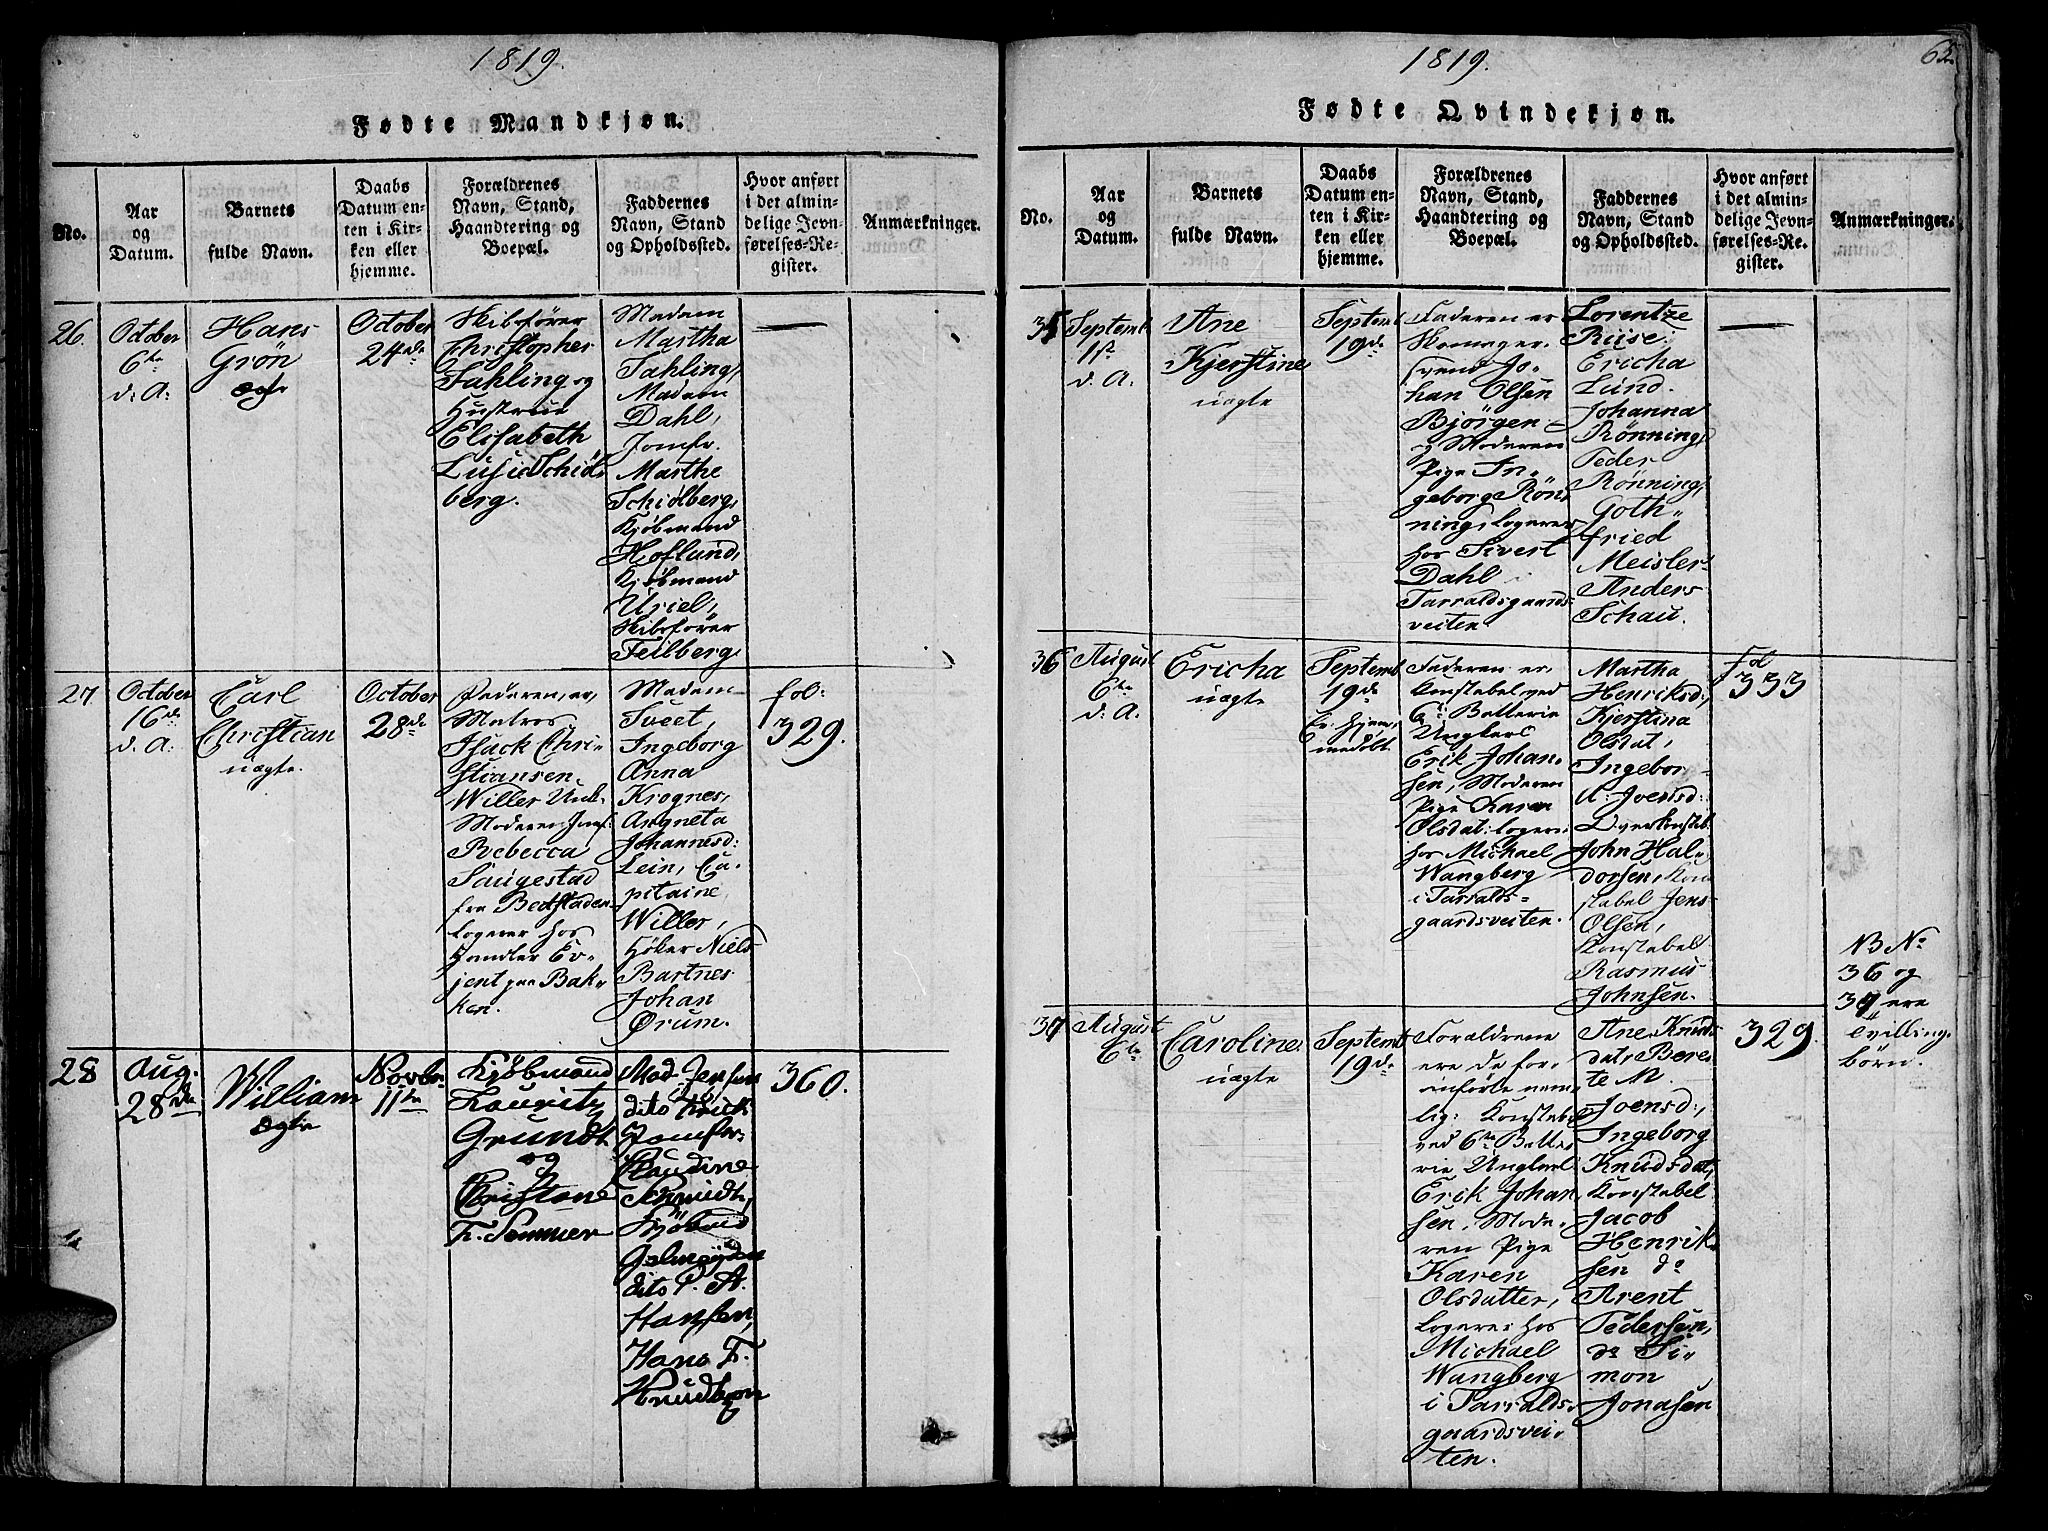 1819.
Fødte Mandkjøn.
No.
Aar
og
Datum.
Barnets
fulde Navn.
Daabs
Datum en-
ten i Kir-
ken eller
hjemme.
Forældrenes
Navn, Stand,
Haandtering og
Boepæl.
Faddernes
Navn, Stand
og Opholdssted.
Hvor anført
i det almin-
delige Jevn-
førelses-Re-
gister.
Anmærkninger.
26.
October
6te
d: A:
Hans
Grön
ægte
October
24de
Skibsfører
Christopher
Fahling og
Hustrue
Elisabeth
Lusie Schiöl
berg.
Madam
Martha
Fahling,
Madam
Dahl,
Jomfr.
Marthe
Schiölberg,
Kjöbmand
Hoflund,
Kjöbmand
Uriel,
Skibsfører
Feilberg
27
October
16de
d. A:
Carl
Christian
uægte.
October
28de
Faderen er,
Matros
Isack Chri-
stiansen
Willer Unk.
Moderen Jmf:
Rebecca
Saugestad
fra Bedstaden
logerer hos
Handler Ev-
jent paa Bak-
ken.
Madam
Sveet,
Ingeborg
Anna
Krognes,
Angneta
Johannesd:
Lein, Ca-
pitaine
Willer,
Höker Niels
Bartnes
Johan
Ørum.
fol:
329.
28
Aug.
28de
William
ægte
Novbr.
11te
Kjöbmand
Lauritz
Grundt
og
Christane
F. Sommer
Mad. Jensen
dito Krick
Jomfr.
Claudine
Schmidt,
Kjöbmd
Galmeyden
dito P. A.
Hansen,
Hans F.
Knudtzon
360.
1819.
65.
Fødte Qvindekjøn.
No.
Aar
og
Datum.
Barnets
fulde Navn.
Daabs
Datum en-
ten i Kir-
ken eller
hjemme.
Forældrenes
Navn, Stand,
Haandtering og
Boepæl.
Faddernes
Navn, Stand
og Opholdssted.
Hvor anført
i det almin-
delige Jevn-
førelses-Re-
gister.
Anmærkninger.
35
Septemb.
1st
d. A:
Ane
Kjerstine
uægte
Septemb
19de
Faderen er
Skomager
svend Jo-
han Olsen
Bjørgen
og Moderen
Pige In-
geborg Rön-
ning, logerer
hos Sivert
Dahl i
Tarraldsgaards-
veiten
Lorentze
Riise.
Ericha
Lund.
Johanna
Rönning,
Peder
Rönning,
Goth-
fried
Meisler
Anders
Schau.
36
August
6te
d: A:
Ericha
uægte
Septemb
19de
Er hjem-
medöbt
Faderen er
Konstabel ved
6te Batterie
Unglert
Erik Johan-
sen, Moderen
Pige Karen
Olsdat: logere:
hos Michael
Wangberg
i Tarralds-
gaardsveiten.
Martha
Henriksd:,
Kjerstina
Olsdat,
Ingebor-
Joensd:
Overkonstab:
John Hal-
dorsen, Kon
stabel Jens
Olsen,
Konstabel
Rasmus
Johnsen.
Fol
333
37
August
6te
Caroline
uægte
Septemb
19de
Forældrene
ere de for-
anførte nem-
lig: Konstabel
ved 6te Batte-
rie Unglert
Erik Johan
sen, Mode-
ren Pige
Karen
Olsdatter,
logerer hos
Michael
Wangberg
i Tarralds-
gaardsvei-
ten.
Ane Knuds
dat, Bere-
te M.
Joensd:,
Ingeborg
Knudsdat,
Konstabel
Jacob
Henrik-
sen do
Arent
Pedersen,
do Si-
mon
Jonasen
329.
NB No
36 og
37 ere
Tvilling-
börn.